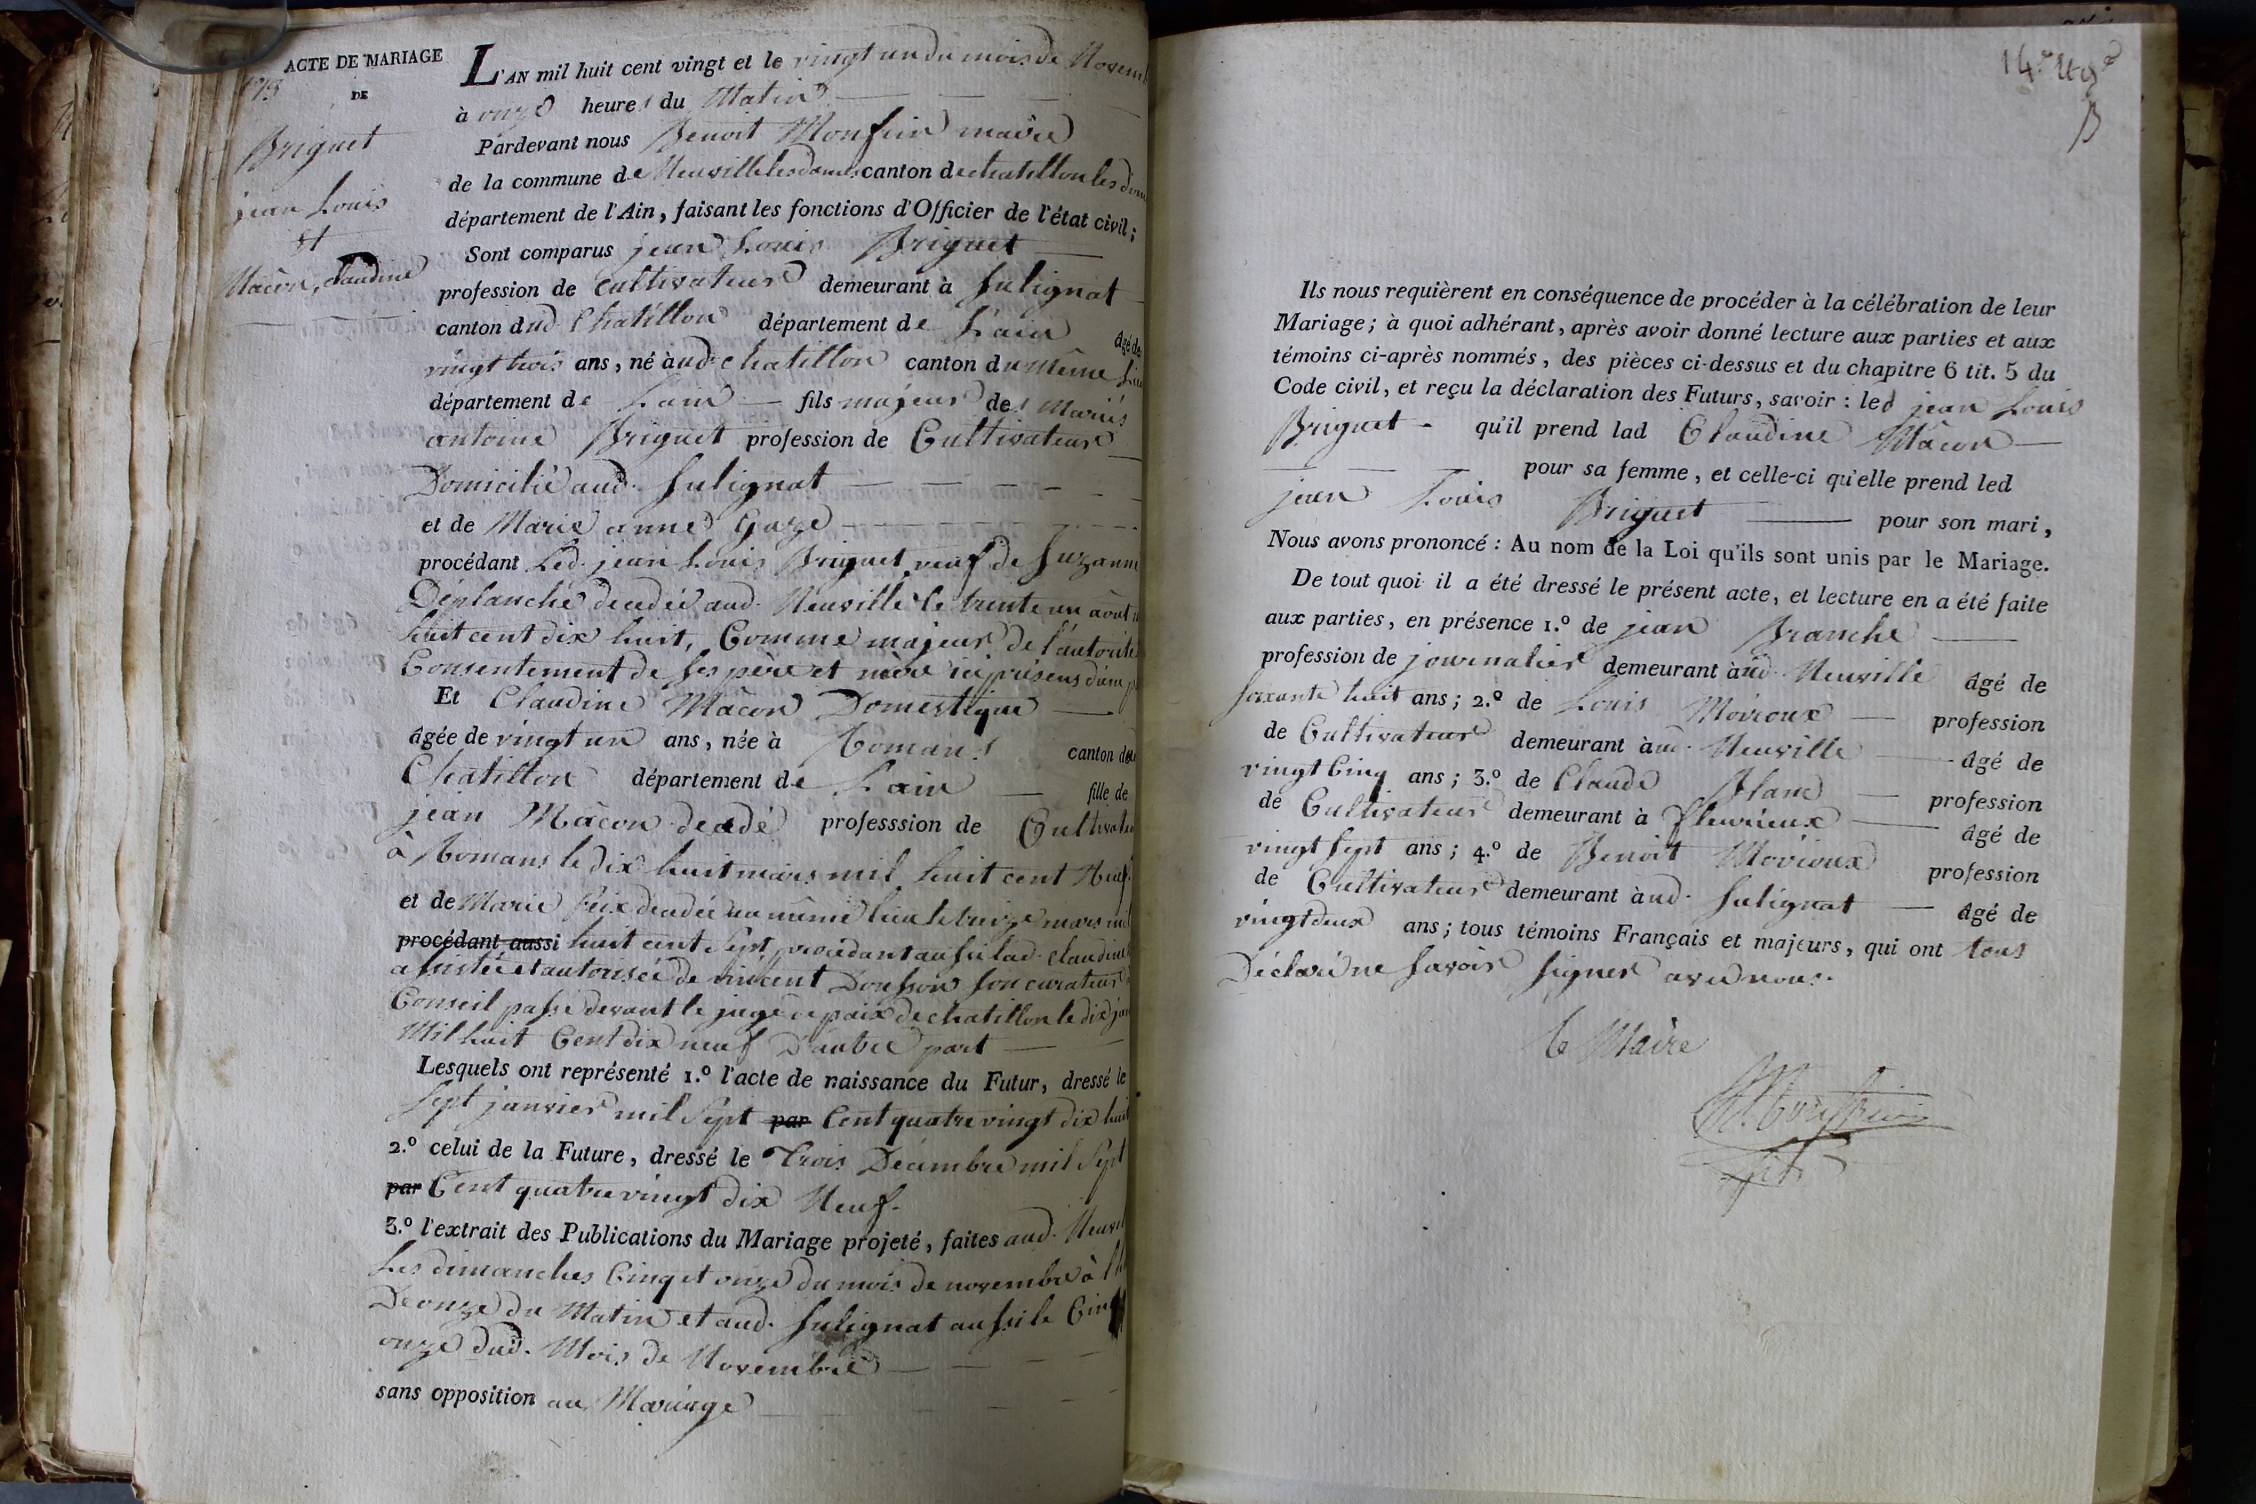 ACTE DE MARIAGE
DE
Briguet
jean Louis
et
Mâcon, claudine
L'AN mil huit cent vingt et le vingt un du mois de Novem
à onze heures du Matin
Pardevant nous Benoit Monfrin maire
de la commune de Neuville les dames canton de chatillon les dom
département de l'Ain, faisant les fonctions d'Officier de l'état civil;
Sont comparus jean Louis Briguet
profession de Cultivateur demeurant à Sulignat
canton dud. Chatillon département de L'ain âgé de
vingt trois ans, né àud. chatillon canton du même lieu
département de L'ain fils majeur des Mariés
antoine Briguet profession de Cultivateur
Domicilié aud. Sulignat
et de Marie anne Gaze
procédant Led. jean Louis Briguet veuf de Suzanne
Déplanche decedée aud. Neuville le trente un août m
huit cent dix huit, Comme majeur de l'autorité
Consentement de ses père et mère ici présens d'une p
Et Claudine Mâcon Domestique
âgée de vingt un ans, née à Romans canton de
Chatillon département de L'ain fille de
jean Mâcon decedé professsion de Cultivateu
à Romans le dix huit mars mil huit cent Neuf
et de Marie decedée au même lieu le treize mars mil
procédant aussi huit cent Sept, procedant aussi lad. claudine
assistée et autorisée de vincent son curateur
Conseil passé devant le juge de paix de chatillon le dix jan
Mil huit Cent dix neuf D'autre part
Lesquels ont représenté 1.º l'acte de naissance du Futur, dressé le
Sept janvier mil Sept par Cent quatre vingt dix huit
2.º celui de la Future, dressé le Trois Décembre mil Sept
par Cent quatre vingt dix Neuf.
3.º l'extrait des Publications du Mariage projeté, faites aud. Neuvil
Les dimanches Cinq et onze du mois de novembre à l'h
De onze du Matin et aud. Sulignat aussi le Cinq
onze dud. Mois de Novembre
sans opposition au Mariage
Ils nous requièrent en conséquence de procéder à la célébration de leur
Mariage; à quoi adhérant, après avoir donné lecture aux parties et aux
témoins ci-après nommés, des pièces ci-dessus et du chapitre 6 tit. 5 du
Code civil, et reçu la déclaration des Futurs, savoir : led jean Louis
Briguet qu'il prend lad Claudine Mâcon
pour sa femme, et celle-ci qu'elle prend led
jean Louis Briguet pour son mari,
Nous avons prononcé : Au nom de la Loi qu'ils sont unis par le Mariage.
De tout quoi il a été dressé le présent acte, et lecture en a été faite
aux parties, en présence 1.º de jean Branche
profession de journalier demeurant àud. Neuville âgé de
soixante huit ans; 2.º de Louis Moiroux profession
de Cultivateur demeurant àud. Neuville âgé de
vingt Cinq ans; 3.º de Claude Blanc profession
de Cultivateur demeurant à fleurieux âgé de
vingt Sept ans; 4.º de Benoit profession
de Cultivateur demeurant àud. Sulignat âgé de
vingt deux ans; tous témoins Français et majeurs, qui ont tous
Déclaré ne savoir signer avec nous.
le Maire